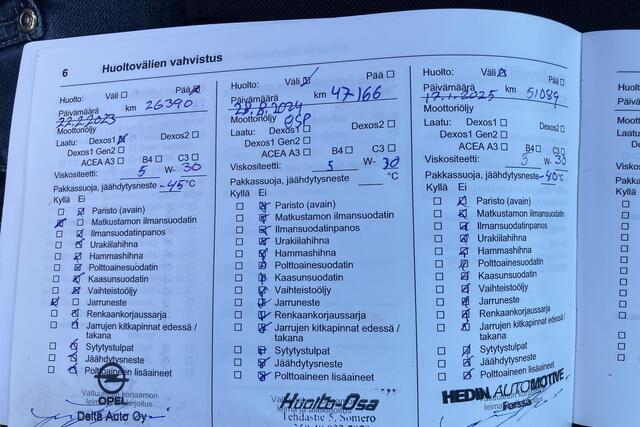 6 Huoltovälien vahvistus
Huolto: Väli Pää
Päivämäärä km 26390
22.2.2023
Moottoriöljy
Laatu: Dexos1 Dexos2
Dexos1 Gen2
ACEA A3 B4 C3
Viskositeetti: 5 W-30
Pakkassuoja, jäähdytysneste -45 °C
Kyllä Ei
Paristo (avain)
Matkustamon ilmansuodatin
Ilmansuodatinpanos
Urakiilahihna
Hammashihna
Polttoainesuodatin
Kaasunsuodatin
Vaihteistoöljy
Jarruneste
Renkaankorjaussarja
Jarrujen kitkapinnat edessä /
takana
Sytytystulpat
Jäähdytysneste
Polttoaineen lisäaineet
OPEL
Delta Auto Oy
Huolto: Väli Pää
Päivämäärä km 47166
28.8.2024
Moottoriöljy OSP
Laatu: Dexos1 Dexos2
Dexos1 Gen2
ACEA A3 B4 C3
Viskositeetti: 5 W-30
Pakkassuoja, jäähdytysneste °C
Kyllä Ei
Paristo (avain)
Matkustamon ilmansuodatin
Ilmansuodatinpanos
Urakiilahihna
Hammashihna
Polttoainesuodatin
Kaasunsuodatin
Vaihteistoöljy
Jarruneste
Renkaankorjaussarja
Jarrujen kitkapinnat edessä /
takana
Sytytystulpat
Jäähdytysneste
Polttoaineen lisäaineet
Huolto-Osa
Tehdastie 5, Somero
Huolto: Väli Pää
Päivämäärä km 51089
17.1.2025
Moottoriöljy
Laatu: Dexos1 Dexos2
Dexos1 Gen2
ACEA A3 B4 C3
Viskositeetti: 5 W-30
Pakkassuoja, jäähdytysneste -40 °C
Kyllä Ei
Paristo (avain)
Matkustamon ilmansuodatin
Ilmansuodatinpanos
Urakiilahihna
Hammashihna
Polttoainesuodatin
Kaasunsuodatin
Vaihteistoöljy
Jarruneste
Renkaankorjaussarja
Jarrujen kitkapinnat edessä /
takana
Sytytystulpat
Jäähdytysneste
Polttoaineen lisäaineet
HEDIN AUTOMOTIVE
Forssa